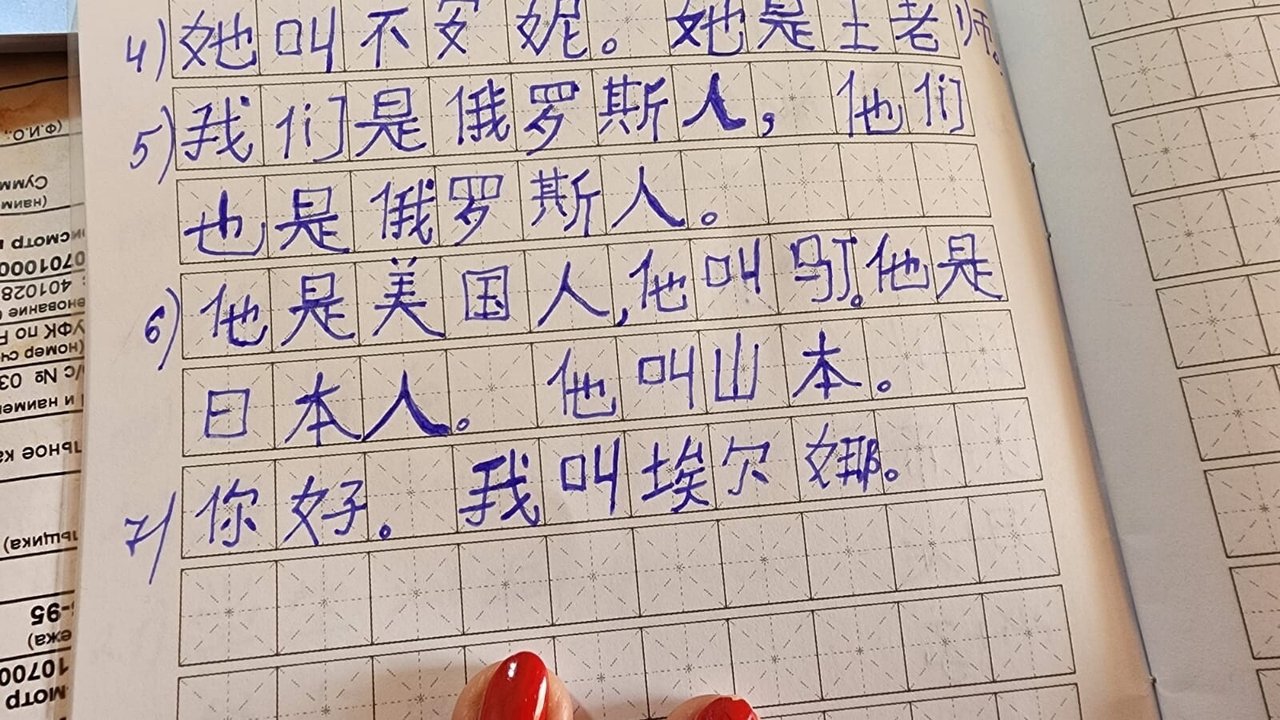 4) 她叫不安妮。她是王老师。
5) 我们是俄罗斯人，他们
也是俄罗斯人。
6) 他是美国人，他叫马丁。他是
日本人。他叫山本。
7) 你好。我叫埃尔娜。
мотр
10700
ежа)
-95
льщика)
льное ка
и наимен
/с № 03
(номер сч
УФК по Р
енование
401028
0701000
исмотр
(наим
Сумм
(Ф.И.О.;